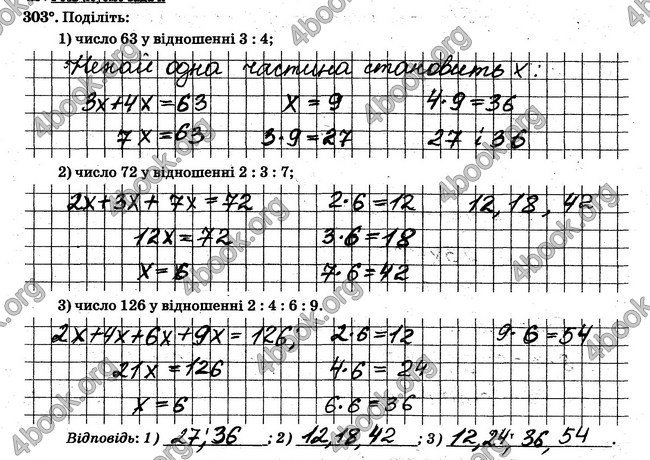 303°. Поділіть:
1) число 63 у відношенні 3 : 4;
Нехай одна частина становить x :
3x+4x=63 x = 9 4·9=36
7x=63 3·9=27 27 і 36
2) число 72 у відношенні 2 : 3 : 7;
2x+3x+7x=72 2·6=12 12, 18, 42
12x=72 3·6=18
x=6 7·6=42
3) число 126 у відношенні 2 : 4 : 6 : 9.
2x+4x+6x+9x=126, 2·6=12 9·6=54
21x=126 4·6=24
x=6 6·6=36
Відповідь: 1) 27; 36 ; 2) 12, 18, 42 ; 3) 12, 24; 36, 54 .
4book.org